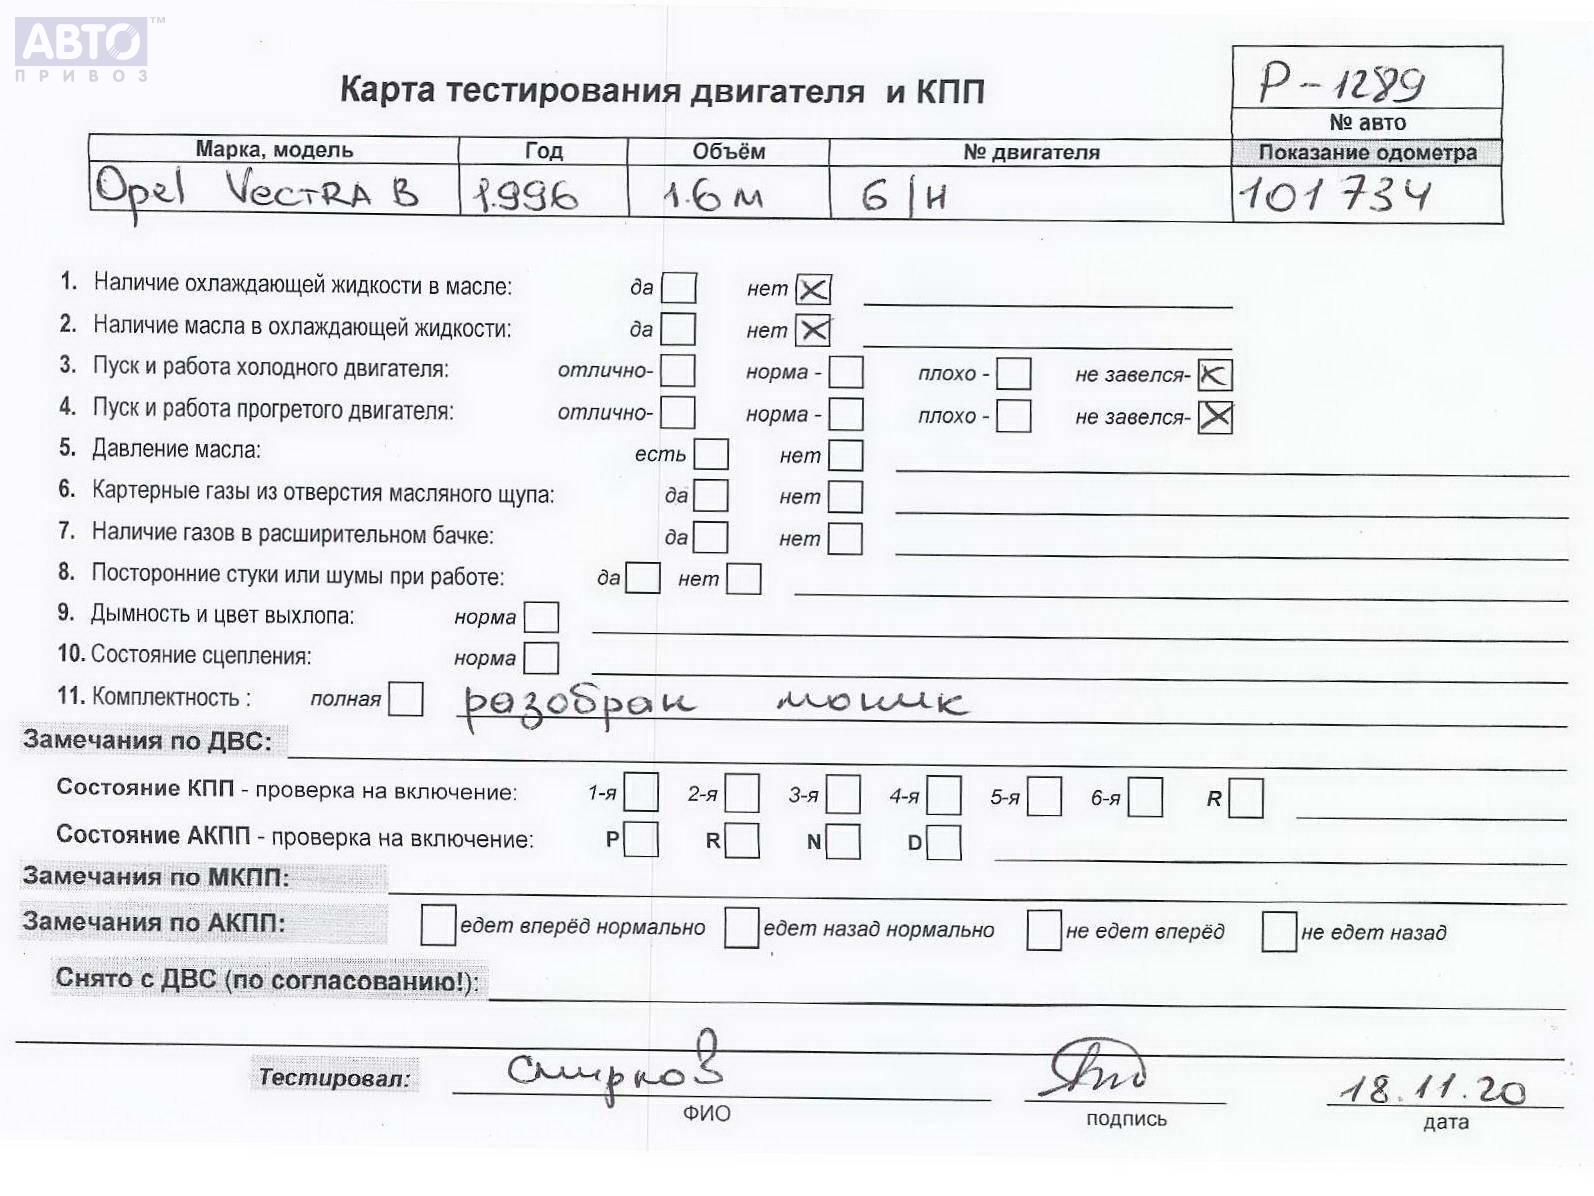 АВТО™
ПРИВОЗ
Карта тестирования двигателя и КПП
Р-1289
№ авто
Марка, модель Год Объём № двигателя Показание одометра
Opel VectRA B 1.996 1.6 м Б/Н 101 734
1. Наличие охлаждающей жидкости в масле: да нет
2. Наличие масла в охлаждающей жидкости: да нет
3. Пуск и работа холодного двигателя: отлично- норма - плохо - не завелся-
4. Пуск и работа прогретого двигателя: отлично- норма - плохо - не завелся-
5. Давление масла: есть нет
6. Картерные газы из отверстия масляного щупа: да нет
7. Наличие газов в расширительном бачке: да нет
8. Посторонние стуки или шумы при работе: да нет
9. Дымность и цвет выхлопа: норма
10. Состояние сцепления: норма
11. Комплектность : полная разобран моник
Замечания по ДВС:
Состояние КПП - проверка на включение: 1-я 2-я 3-я 4-я 5-я 6-я R
Состояние АКПП - проверка на включение: P R N D
Замечания по МКПП:
Замечания по АКПП: едет вперёд нормально едет назад нормально не едет вперёд не едет назад
Снято с ДВС (по согласованию!):
Тестировал: Смирнов 18.11.20
ФИО подпись дата